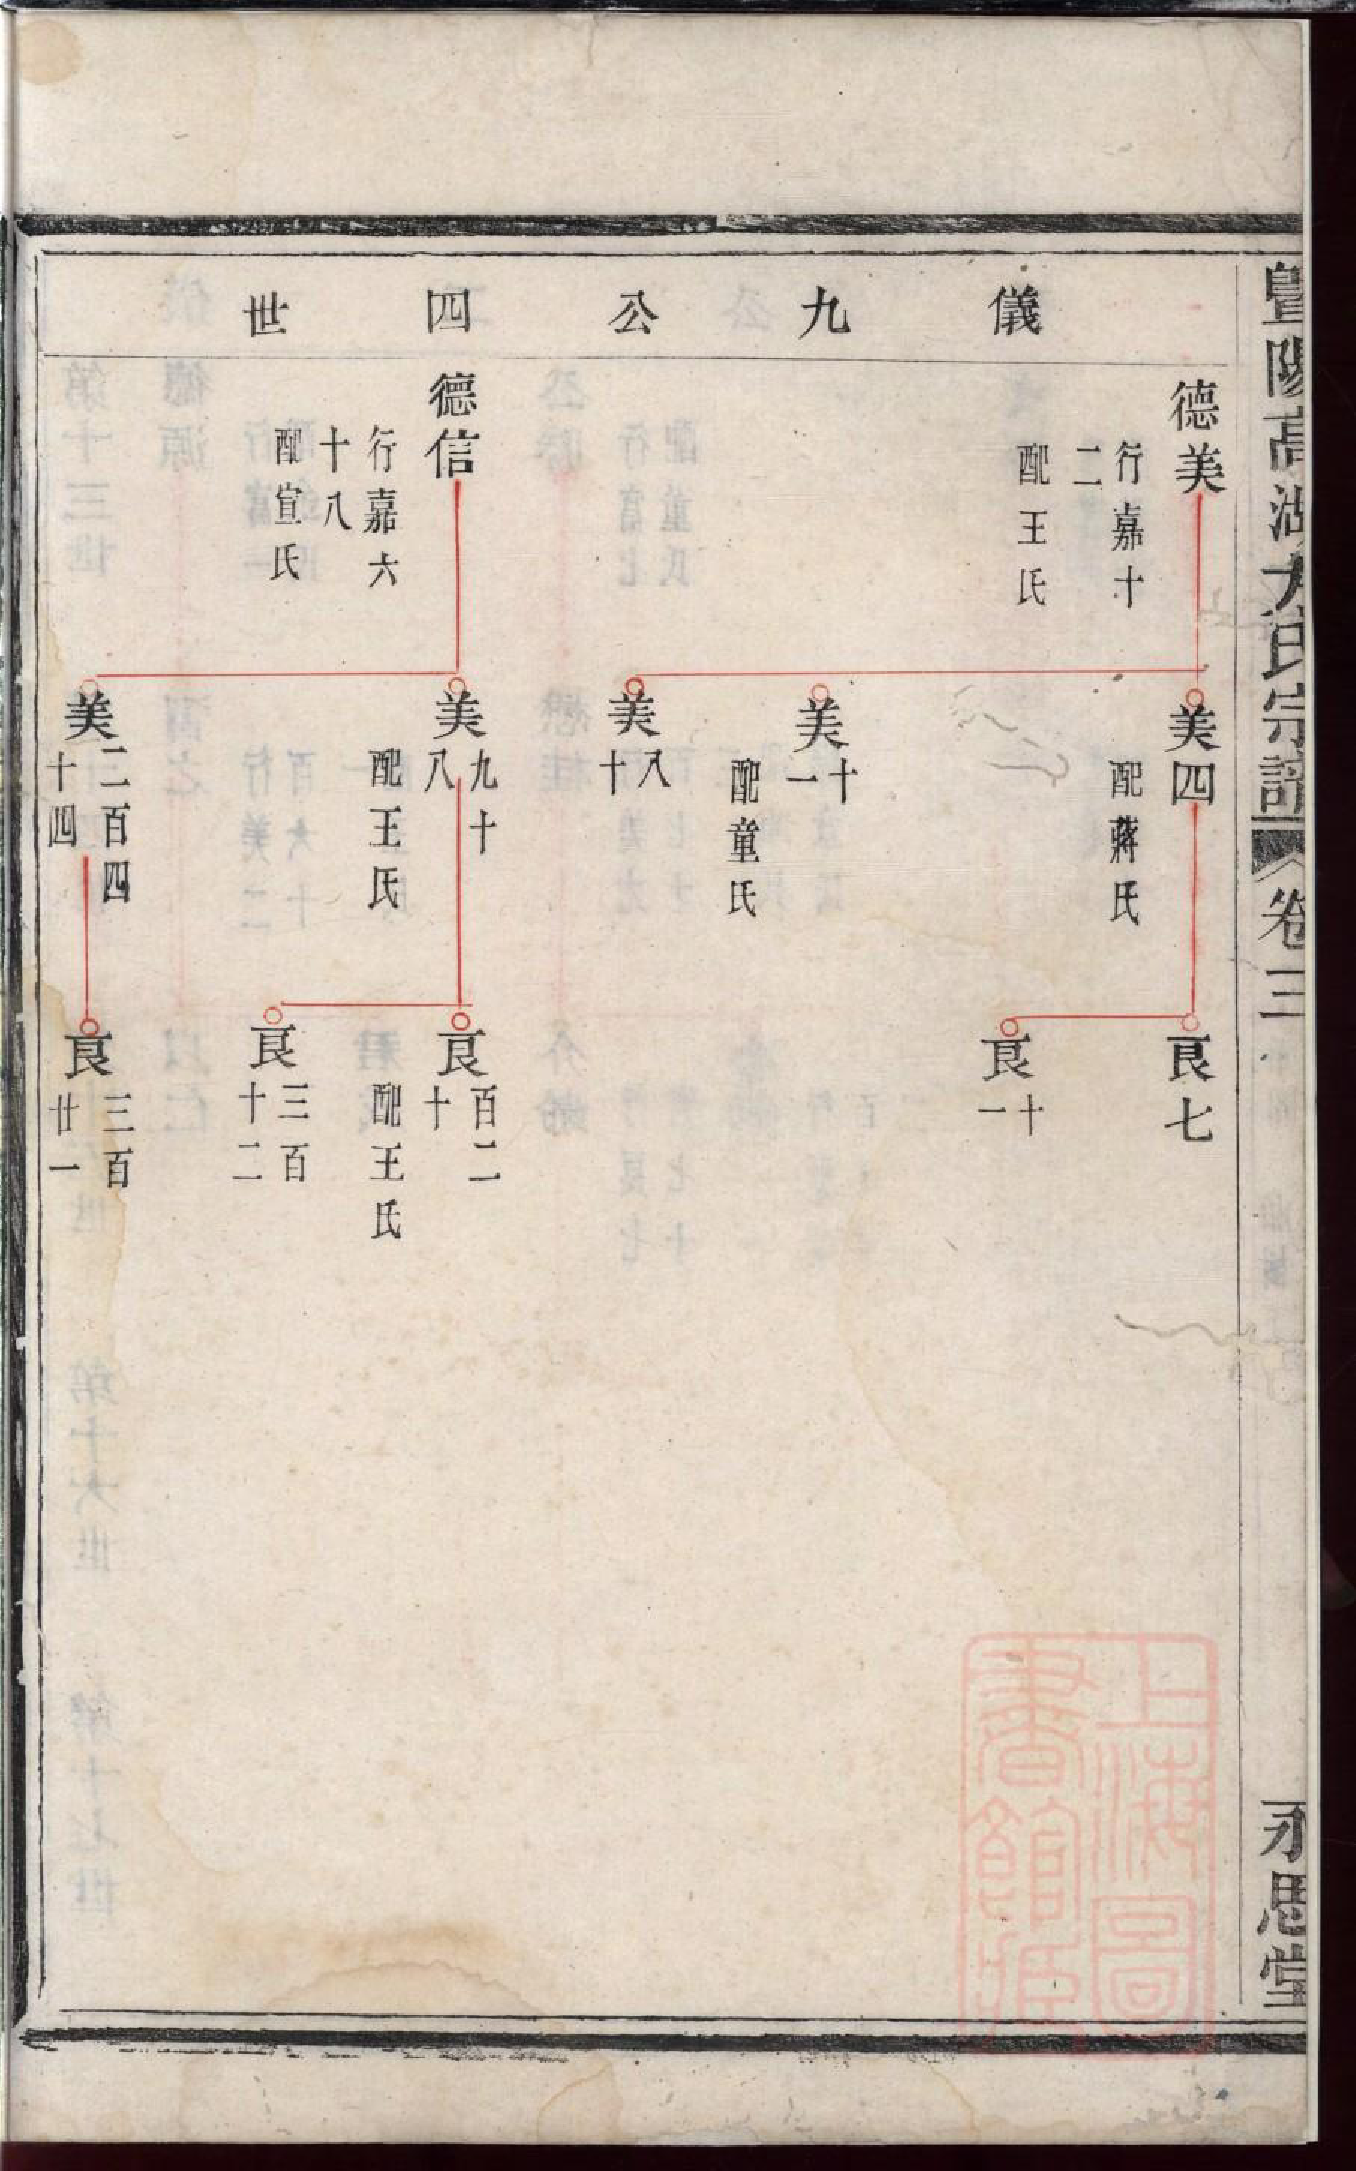 暨陽高湖方氏宗譜
卷三
永思堂
儀九公四世
德美
行嘉十
二
配王氏
美四
配蔣氏
良七
良
十
一
美
十
一
配童氏
美
八
十
德信
行嘉六
十八
配宣氏
美
九十
八
配王氏
良
百二
十
配王氏
良
三百
十二
美
二百四
十四
良
三百
廿一
上海圖
書館藏